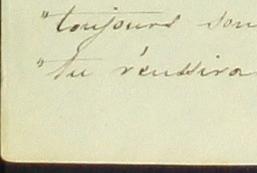 "toujours
"tu réussira